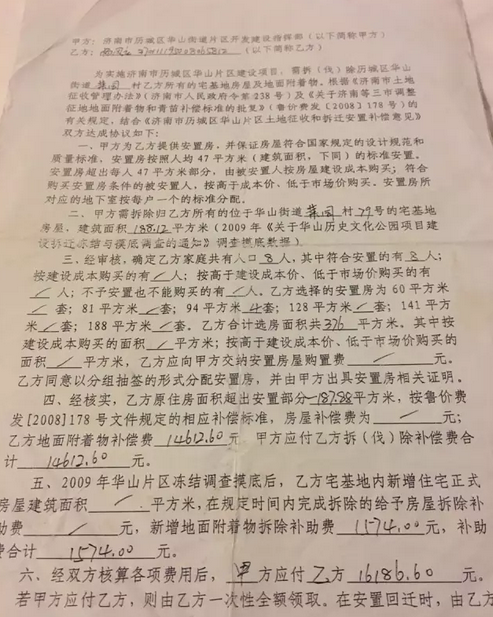 甲方：济南市历城区华山街道片区开发建设指挥部（以下简称甲方）
乙方：（以下简称乙方）
为实施济南市历城区华山片区建设项目，需拆（伐）除历城区华山
街道村乙方所有的宅基地房屋及地面附着物。根据《济南市土地
征收管理办法》（济南市人民政府令第238号）及《关于济南等三市调整
征地地面附着物和青苗补偿标准的批复》（鲁价费发［2008］178号）的
有关规定，结合《济南市历城区华山片区土地征收和拆迁安置补偿意见》
双方达成协议如下：
一、甲方为乙方提供安置房，并保证房屋符合国家规定的设计规范和
质量标准，安置房按照人均47平方米（建筑面积，下同）的标准安置。
安置房超出每人47平方米部分，由被安置人按房屋建设成本购买；符合
购买安置房条件的被安置人，按高于成本价、低于市场价购买。安置房所
对应的地下室按每户一个的标准分配。
二、甲方需拆除归乙方所有的位于华山街道村79号的宅基地
房屋、建筑面积188.12平方米（2009年《关于华山历史文化公园项目建
设拆迁冻结与摸底调查的通知》调查摸底数据）
三、经审核，确定乙方家庭共有人口8人，其中符合安置的有8人；
按建设成本购买的有／人；按高于建设成本价、低于市场价购买的有
／人；不予安置也不能购买的有／人。乙方选择的安置房为60平方米
／套；81平方米／套；94平方米4套；128平方米／套；141平方
米／套；188平方米／套。乙方合计选房面积共376平方米。其中按
建设成本购买的面积／平方米；按高于建设成本价、低于市场价购买的
面积／平方米，乙方应向甲方交纳安置房屋购置费／元。
乙方同意以分组抽签的形式分配安置房，并由甲方出具安置房相关证明。
四、经核实，乙方原住房面积超出安置部分-187.88平方米，按鲁价费
发［2008］178号文件规定的相应补偿标准，房屋补偿费为／元；
乙方地面附着物补偿费14612.60元，甲方应付乙方拆（伐）除补偿费合
计14612.60元。
五、2009年华山片区冻结调查摸底后，乙方宅基地内新增住宅正式
房屋建筑面积／平方米，在规定时间内完成拆除的给予房屋拆除补
助费／元，新增地面附着物拆除补助费1574.00元，补助
费合计1574.00元。
六、经双方核算各项费用后，甲方应付乙方16186.60元。
若甲方应付乙方，则由乙方一次性全额领取。在安置回迁时，由乙方